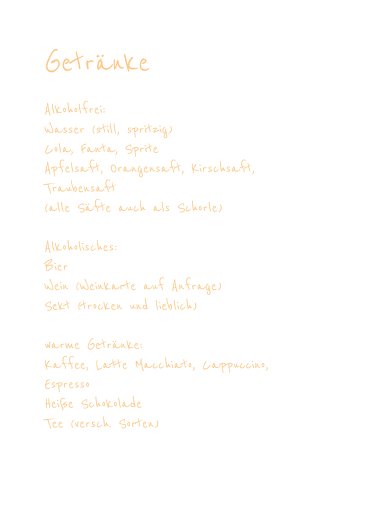 Getränke
Alkoholfrei:
Wasser (still, spritzig)
Cola, Fanta, Sprite
Apfelsaft, Orangensaft, Kirschsaft,
Traubensaft
(alle Säfte auch als Schorle)
Alkoholisches:
Bier
Wein (Weinkarte auf Anfrage)
Sekt (trocken und lieblich)
warme Getränke:
Kaffee, Latte Macchiato, Cappuccino,
Espresso
Heiße Schokolade
Tee (versch Sorten)